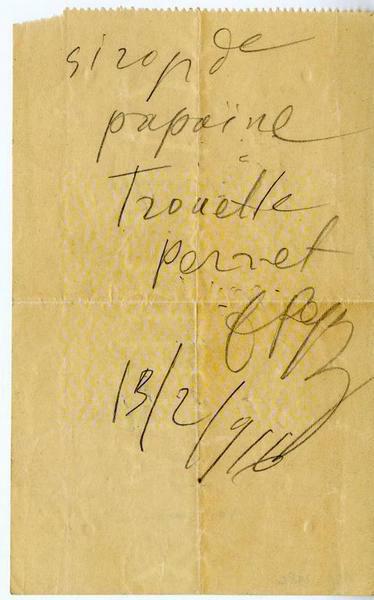 sirop de
papaïne
Trouette
perret
13/2/916